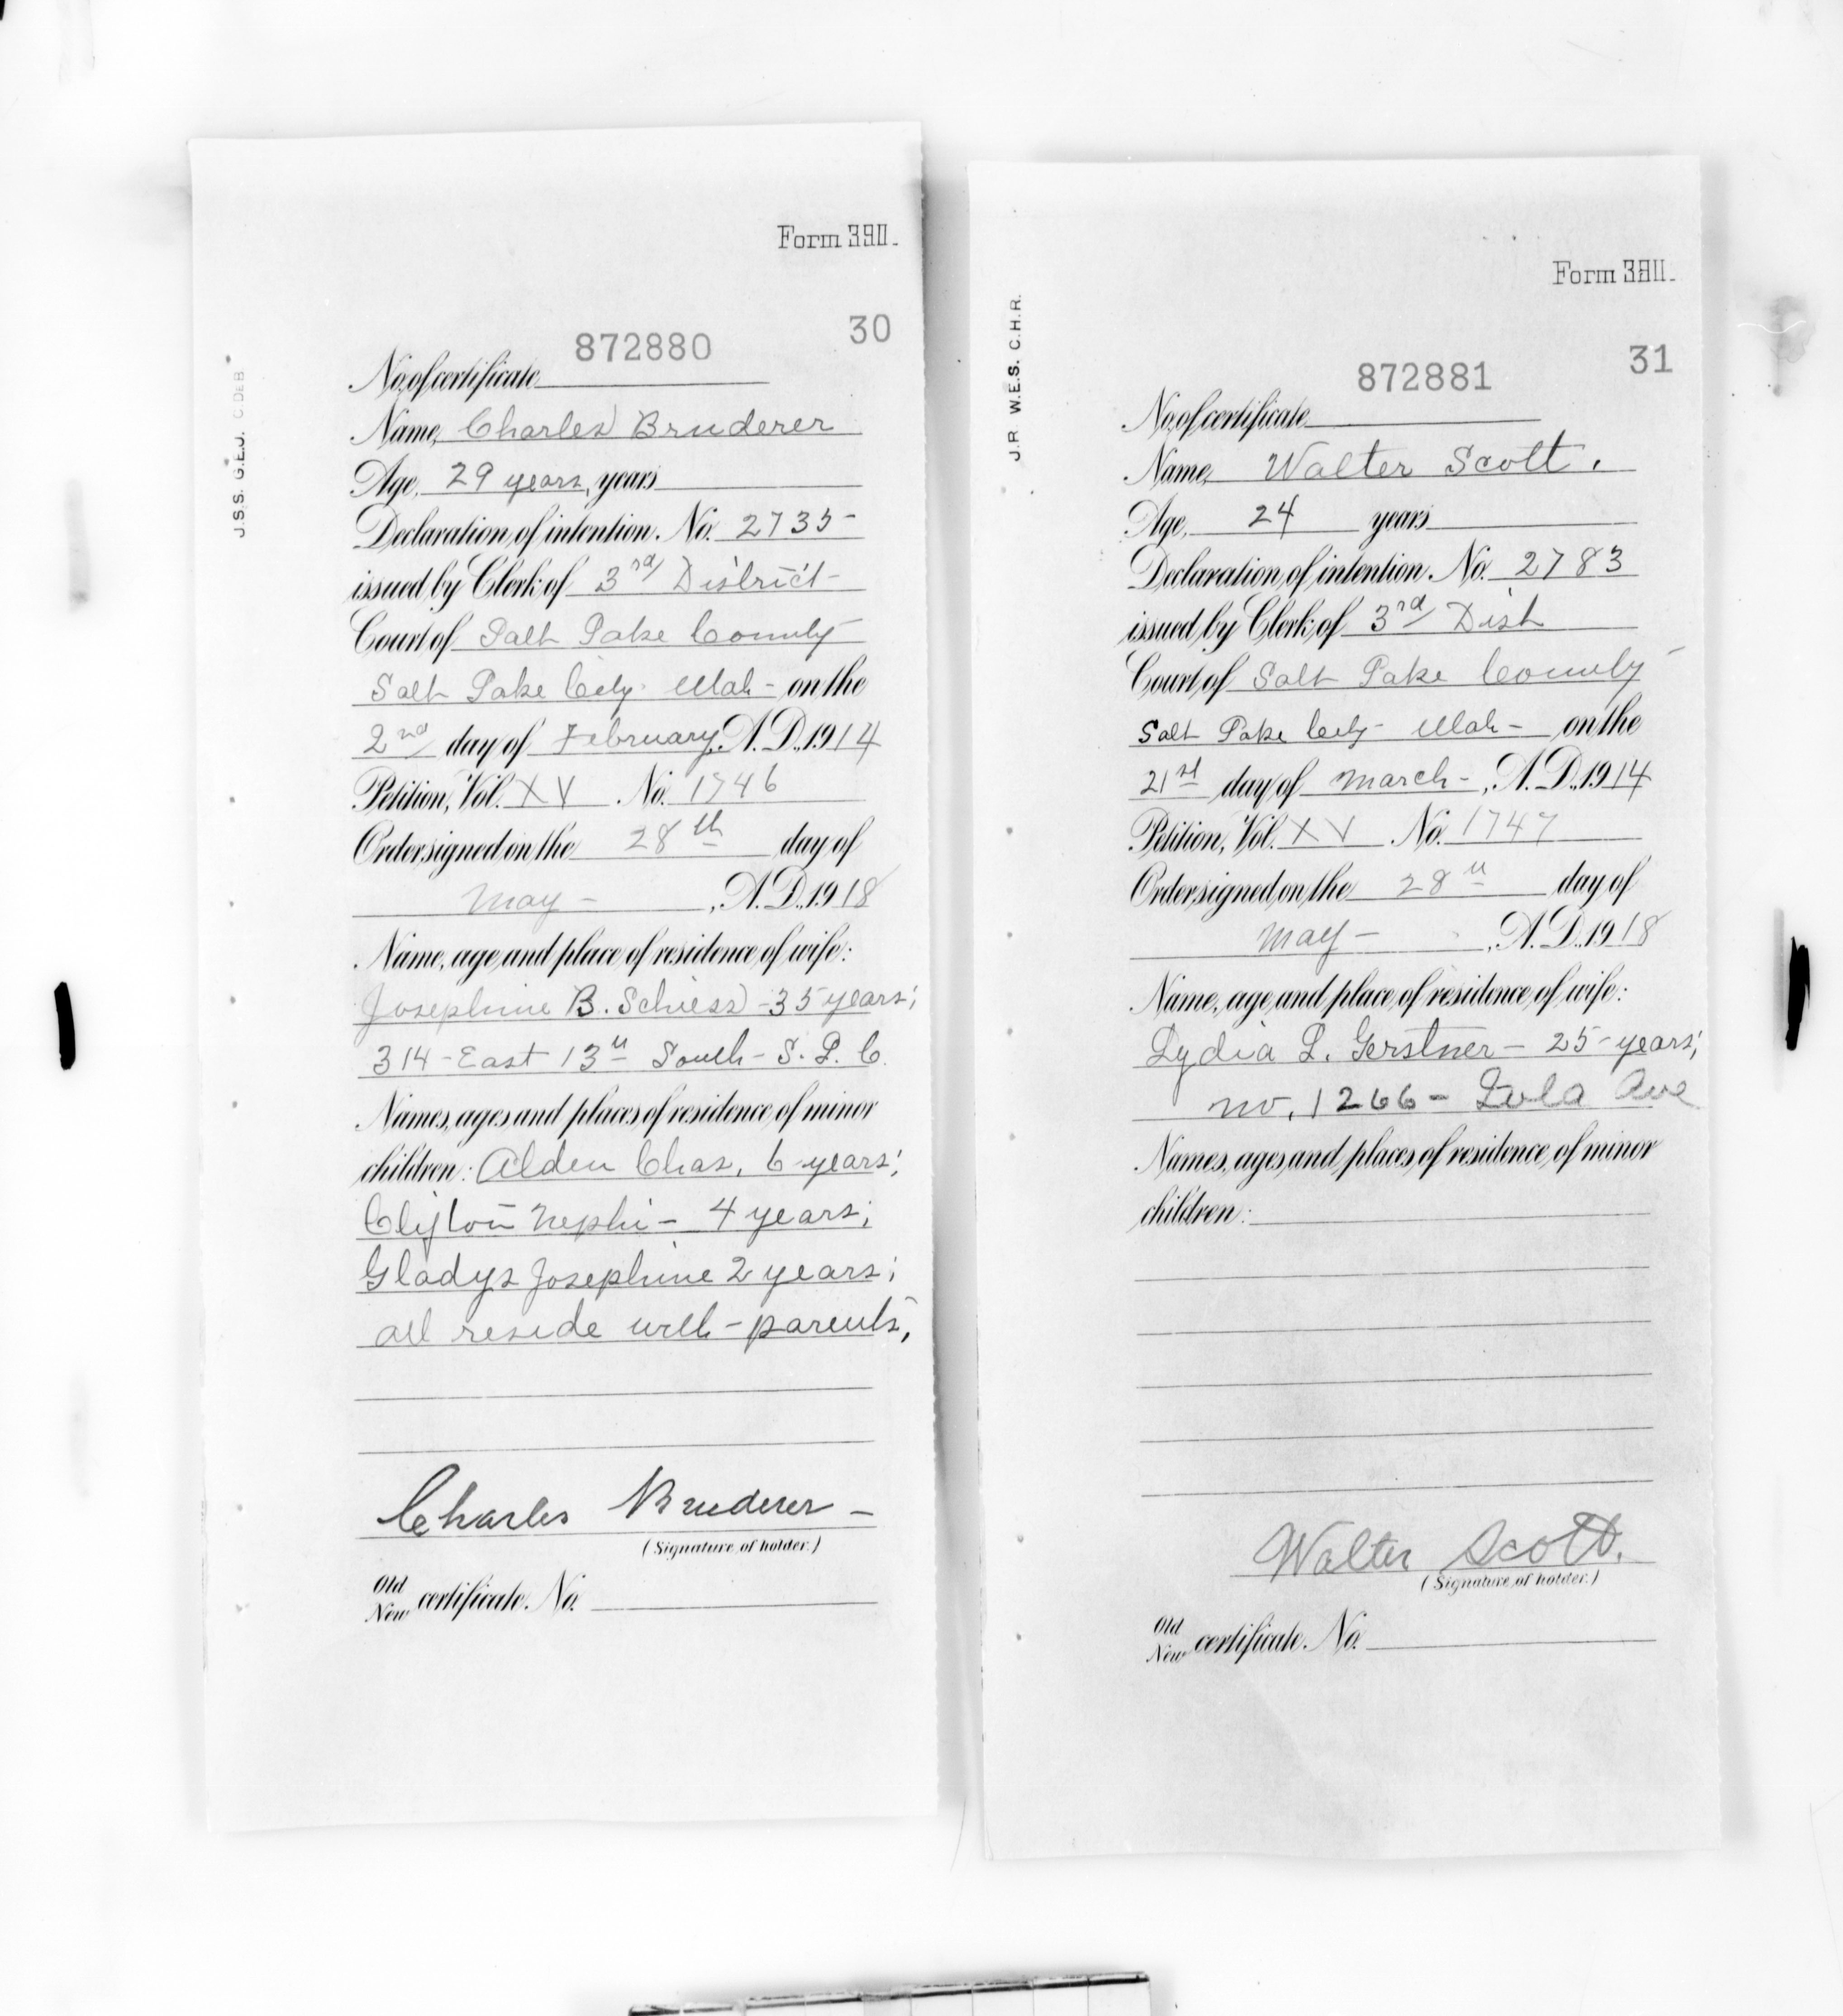 Form 390.
30
872880
No. of certificate
Name, Charles Bruderer
Age, 29 years, years
Declaration of intention. No. 2735-
issued by Clerk of 3rd District-
Court of Salt Lake County
Salt Lake City Utah - on the
2nd day of February, A.D. 1914
Petition, Vol. XV No. 1746
Order signed on the 28th day of
May - , A.D. 1918
Name, age and place of residence of wife:
Josephine B. Schiess - 35 years;
314 - East 13th South - S. L. C.
Names, ages and places of residence of minor
children: Alden Chas, 6 years;
Clifton Nephi - 4 years;
Gladys Josephine 2 years;
all reside with - parents,
Charles Bruderer -
(Signature of holder.)
Old
New certificate. No.
J.S.S. G.E.J.
Form 390.
31
872881
No. of certificate
Name, Walter Scott.
Age, 24 years
Declaration of intention. No. 2783
issued by Clerk of 3rd Dist
Court of Salt Lake County
Salt Lake City - Utah - on the
21st day of March - , A.D. 1914
Petition, Vol. XV No. 1747
Order signed on the 28th day of
May - , A.D. 1918
Name, age and place of residence of wife:
Lydia L. Gerstner - 25 - years;
no. 1266 - Lula Ave
Names, ages and places of residence of minor
children:
Walter Scott.
(Signature of holder.)
Old
New certificate. No.
J.R W.E.S. C.H.R.